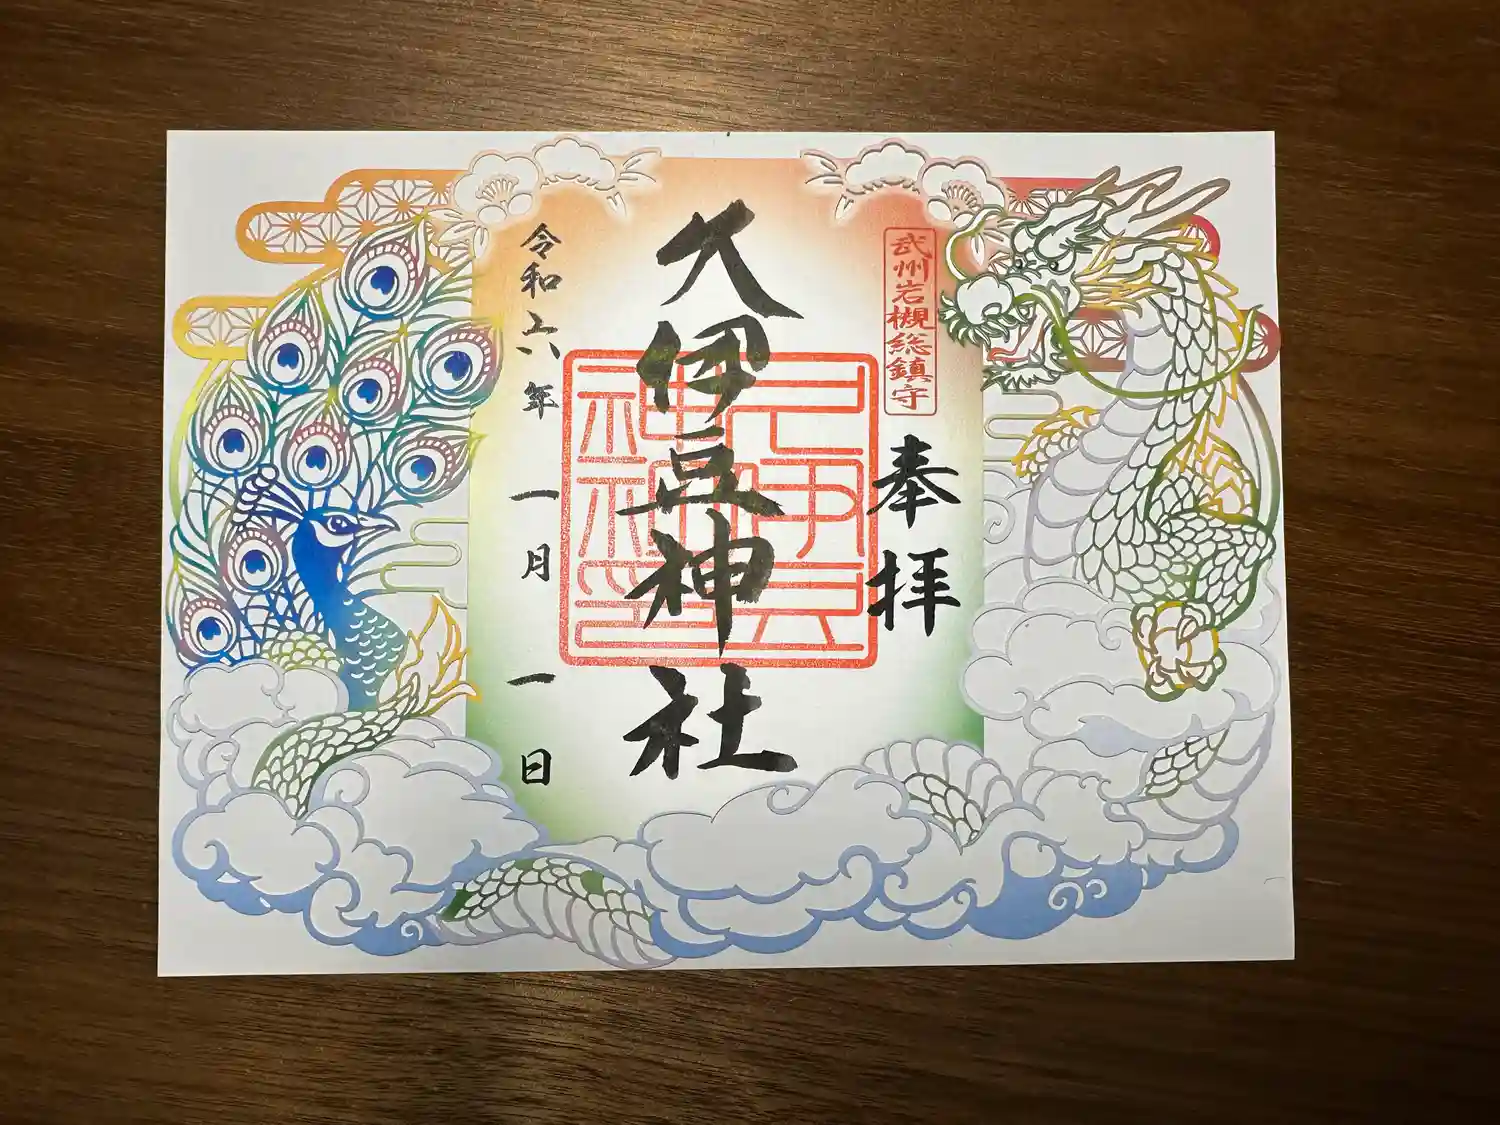 奉拝
武州岩槻総鎮守
久伊豆神社
令和六年一月一日